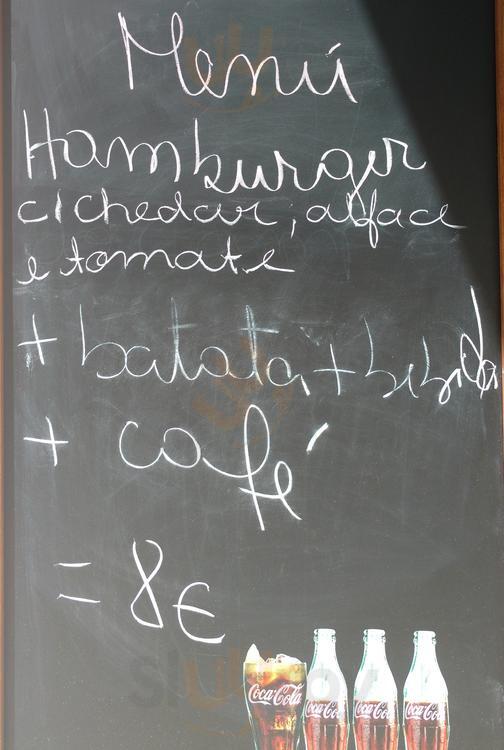 Menú
Hamburger
c/ chedar, alface
e tomate
+ batata + bebida
+ café
= 8€
Coca-Cola
Coca-Cola Coca-Cola Coca-Cola